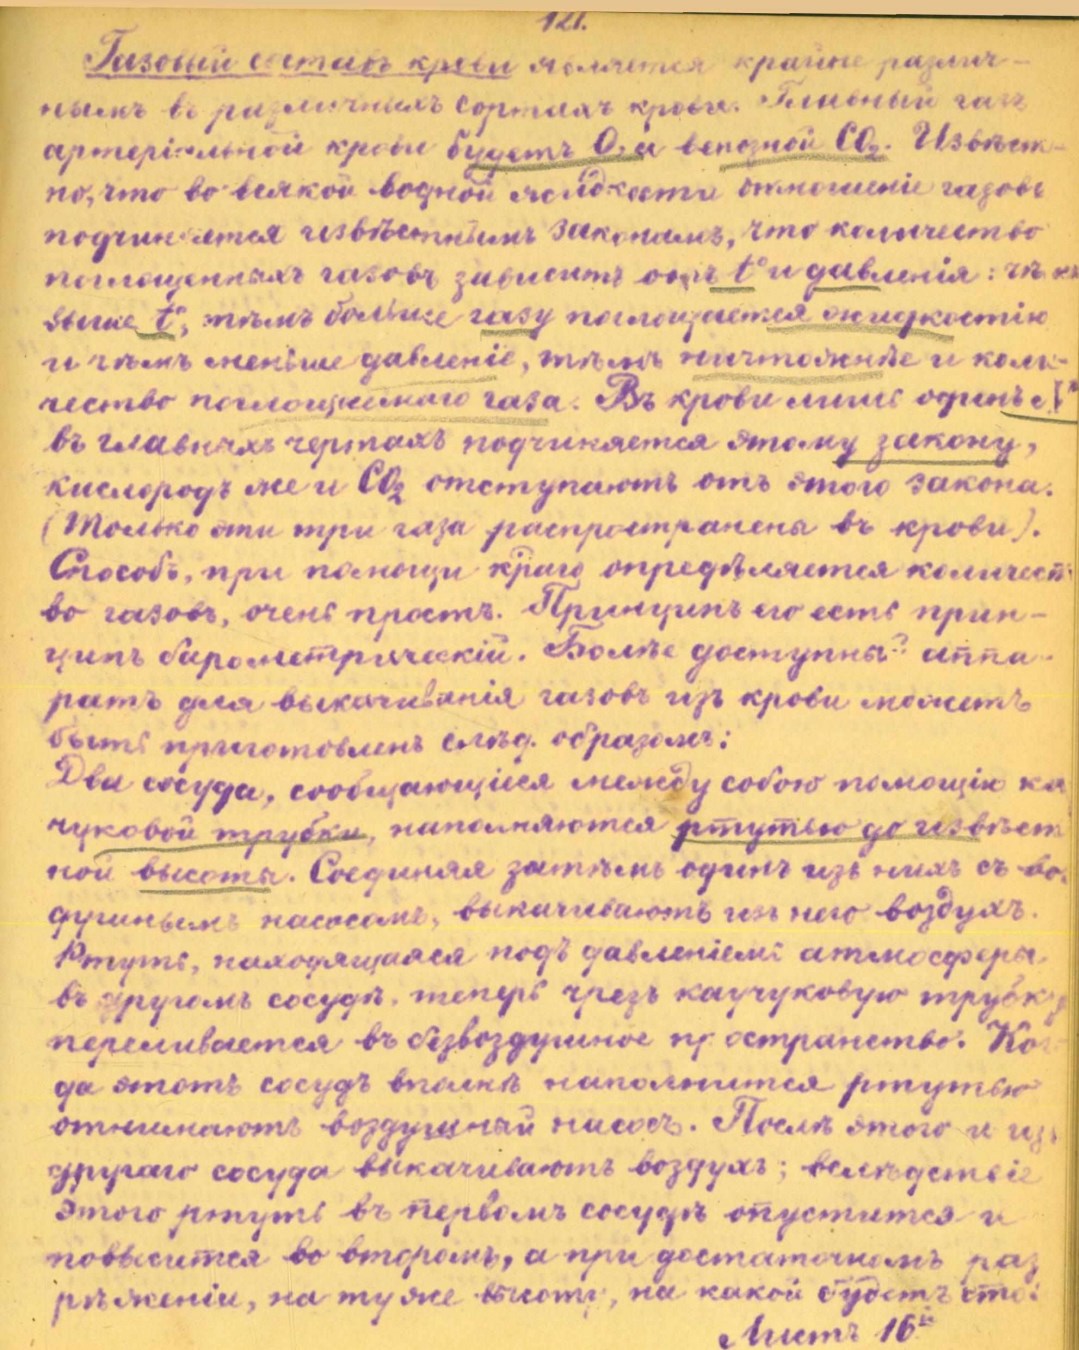 121.
Газовый составъ крови является крайне различ-
нымъ въ различныхъ сортахъ крови. Главный газъ
артеріальной крови будетъ O, а венозной CO2. Извѣст-
но, что во всякой водной жидкости отношеніе газовъ
подчиняется извѣстнымъ законамъ, что количество
поглощенныхъ газовъ зависитъ отъ t° и давленія: чѣмъ
выше t°, тѣмъ больше газу поглощается жидкостію
и чѣмъ меньше давленіе, тѣмъ ничтожнѣе и коли-
чество поглощаемаго газа. Въ крови лишь одинъ N
въ главныхъ чертахъ подчиняется этому закону,
кислородъ же и CO2 отступаютъ отъ этого закона.
(Только эти три газа распространены въ крови).
Способъ, при помощи к̑раго опредѣляется количест
во газовъ, очень простъ. Принципъ его есть прин-
ципъ барометрическій. Болѣе доступный аппа-
ратъ для выкачиванія газовъ изъ крови можетъ
быть приготовленъ слѣд. образомъ:
Два сосуда, сообщающіеся между собою помощію ка
учуковой трубки, наполняются ртутью до извѣст
ной высоты. Соединяя затѣмъ одинъ изъ нихъ съ воз
душнымъ насосомъ, выкачиваютъ изъ него воздухъ.
Ртуть, находящаяся подъ давленіемъ атмосферы
въ другомъ сосудѣ, теперь чрезъ каучуковую трубку
переливается въ безвоздушное пространство. Ког
да этотъ сосудъ вполнѣ наполнится ртутью
отнимаютъ воздушный насосъ. Послѣ этого и изъ
другаго сосуда выкачиваютъ воздухъ; вслѣдствіе
этого ртуть въ первомъ сосудѣ опустится и
повысится во второмъ, а при достаточномъ раз
рѣженіи, на ту же высоту, на какой будетъ стоя
Листъ 16й